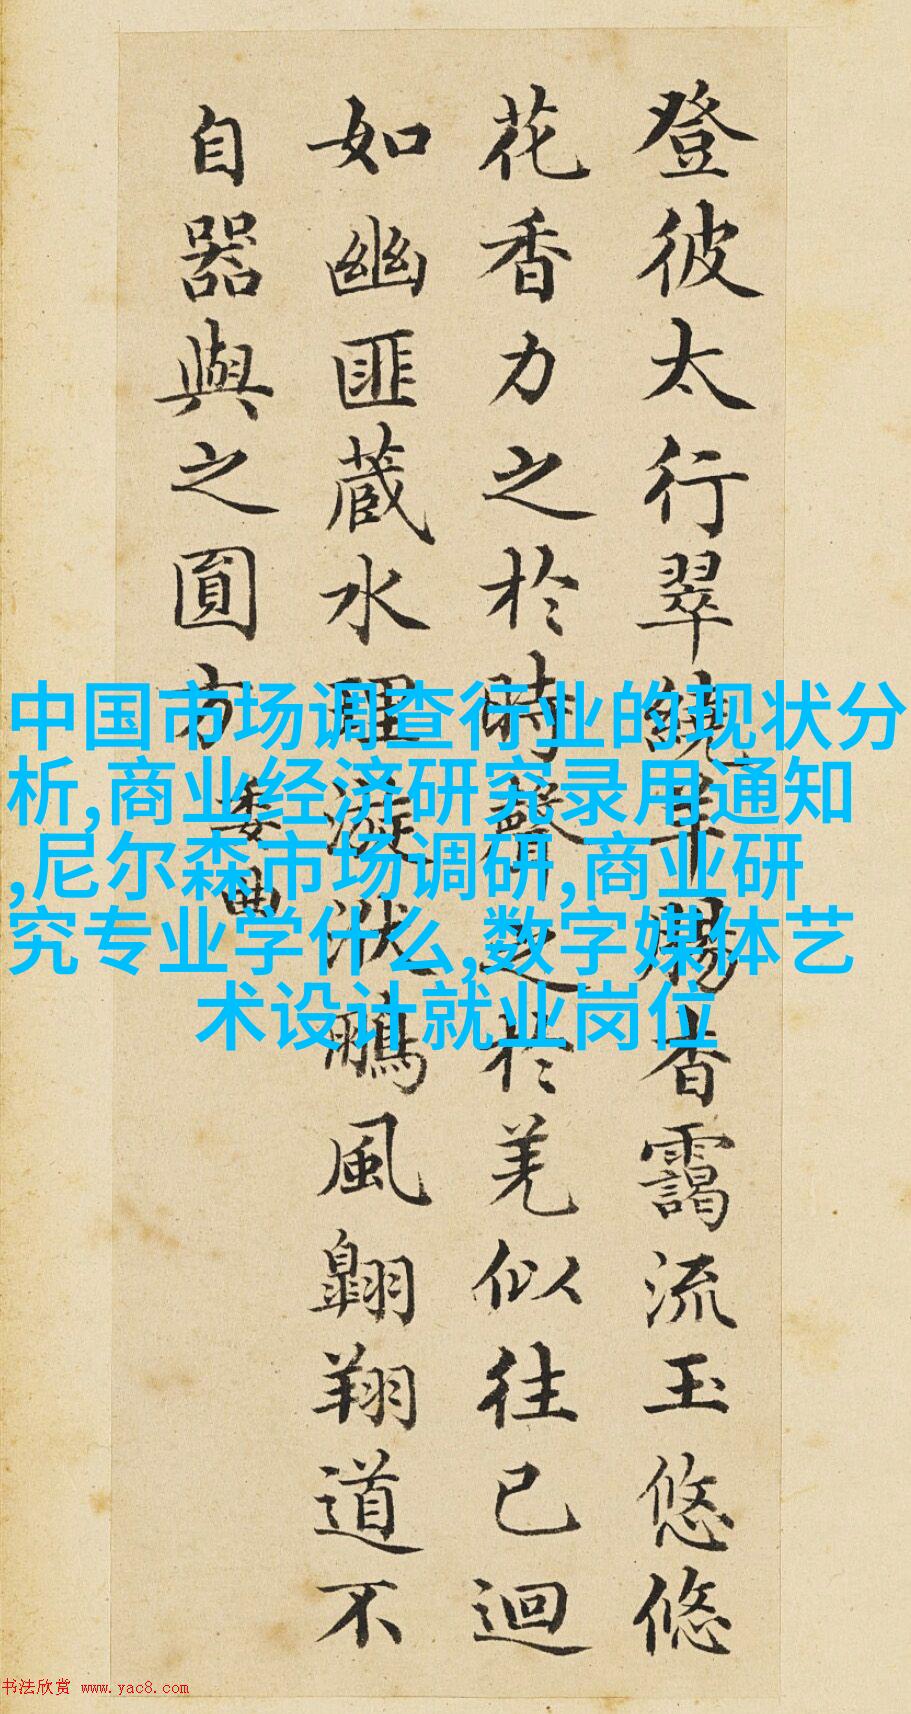 登彼太行翠繞羊腸杳靄流玉悠悠
花香力之於時聲之於羌似往已迴
如幽匪藏水理漩洑鵬風翺翔道不
自器與之圓方
委曲
中国市场调查行业的现状分
析,商业经济研究录用通知
,尼尔森市场调研,商业研
究专业学什么,数字媒体艺
术设计就业岗位
书法欣赏 www.yac8.com